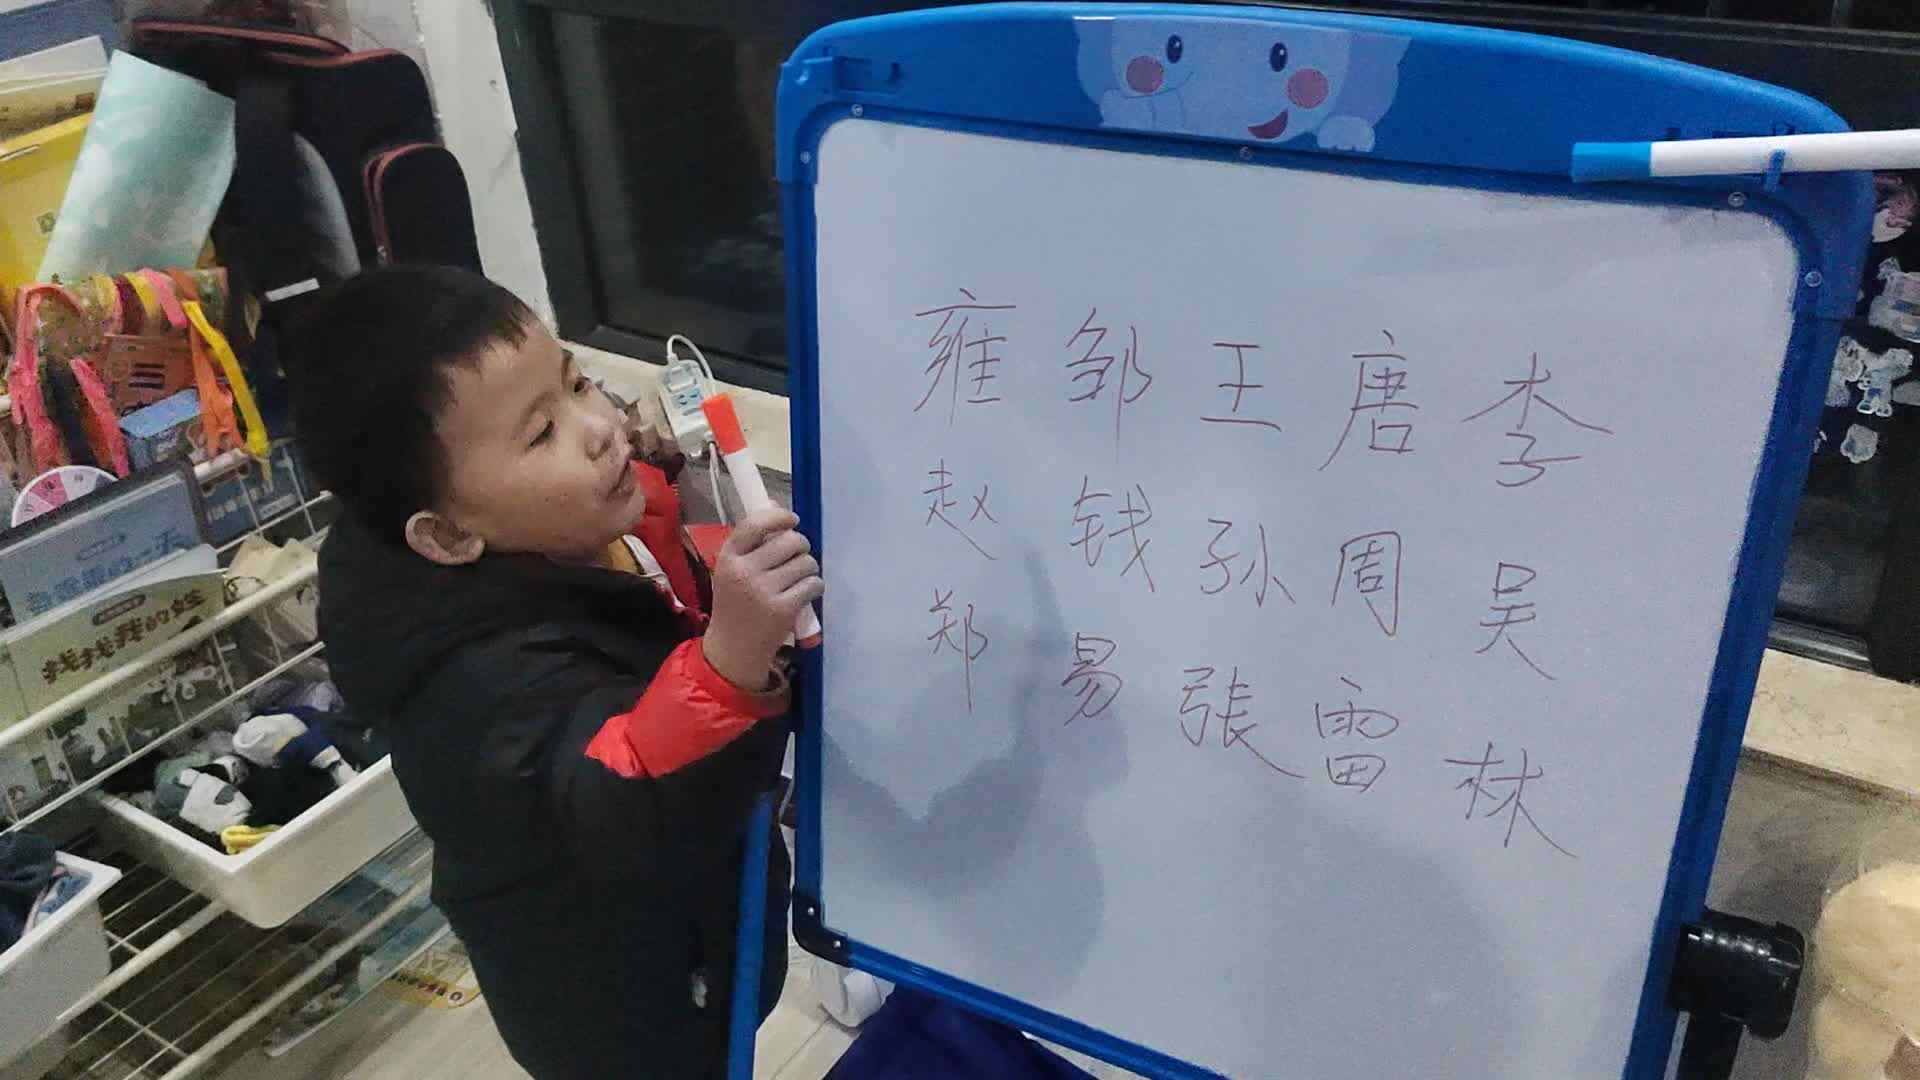 雍 邹 王 唐 李
赵 钱 孙 周 吴
郑 易 張 雷 林
找找我的姓